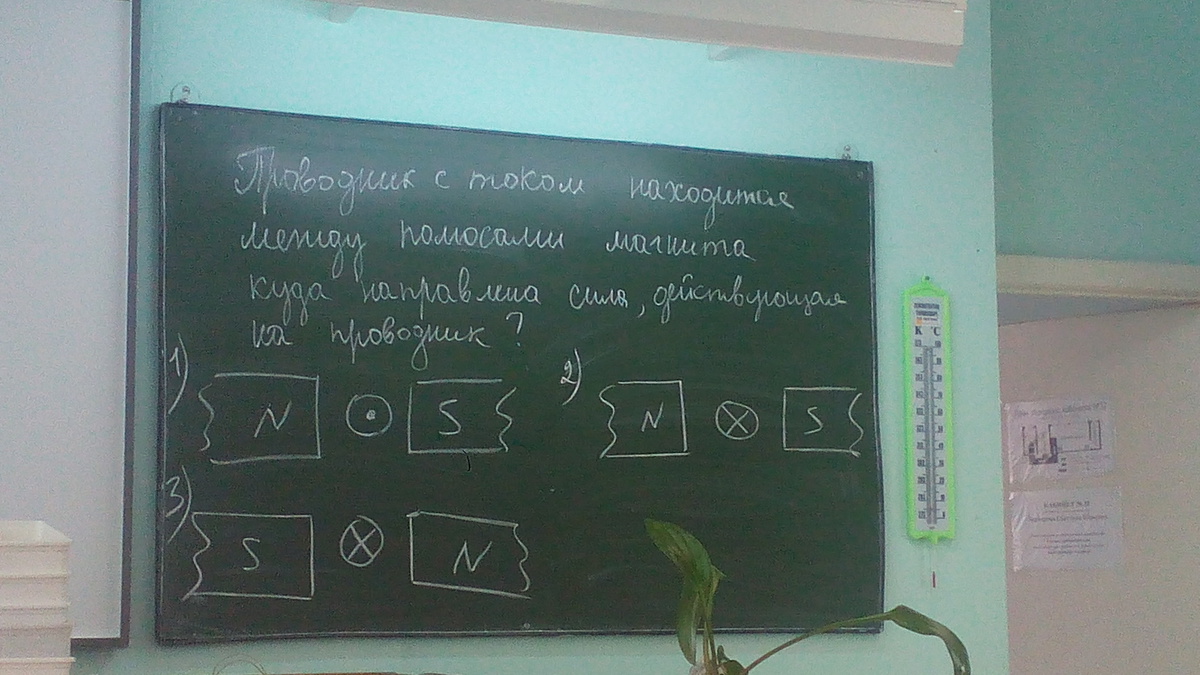 Проводник с током находится
между полюсами магнита
куда направлена сила, действующая
на проводник?
1) N S
2) N S
3) S N
К °С